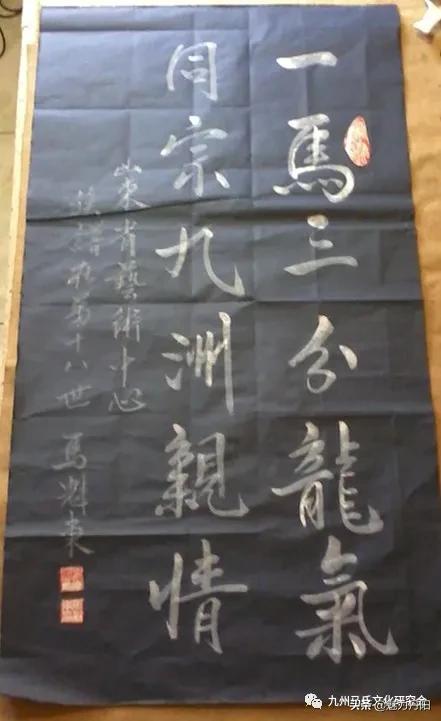 一馬三分龍氣
同宗九洲親情
山東省藝術中心
第十八世 馬魁東
九州马氏文化研究会
头条@魅力丹阳